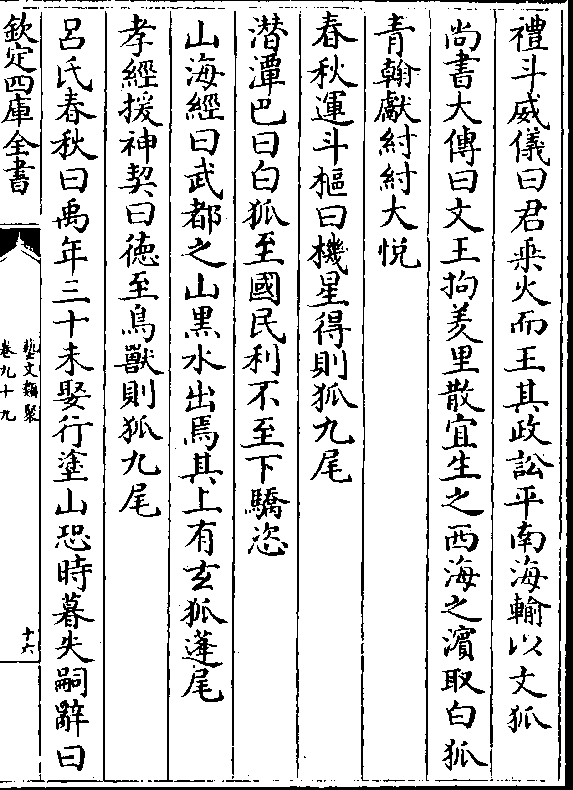 禮斗威儀曰君乗火而王其政訟平南海輸以文狐
尚書大傳曰文王拘羑里散宜生之西海之濵取白狐
青翰獻紂紂大悅
春秋運斗樞曰機星得則狐九尾
潛潭巴曰白狐至國民利不至下驕恣
山海經曰武都之山黒水出焉其上有玄狐蓬尾
孝經援神契曰徳至鳥獸則狐九尾
呂氏春秋曰禹年三十未娶行塗山恐時暮失嗣辭曰
欽定四庫全書
藝文類聚
卷九十九
十六